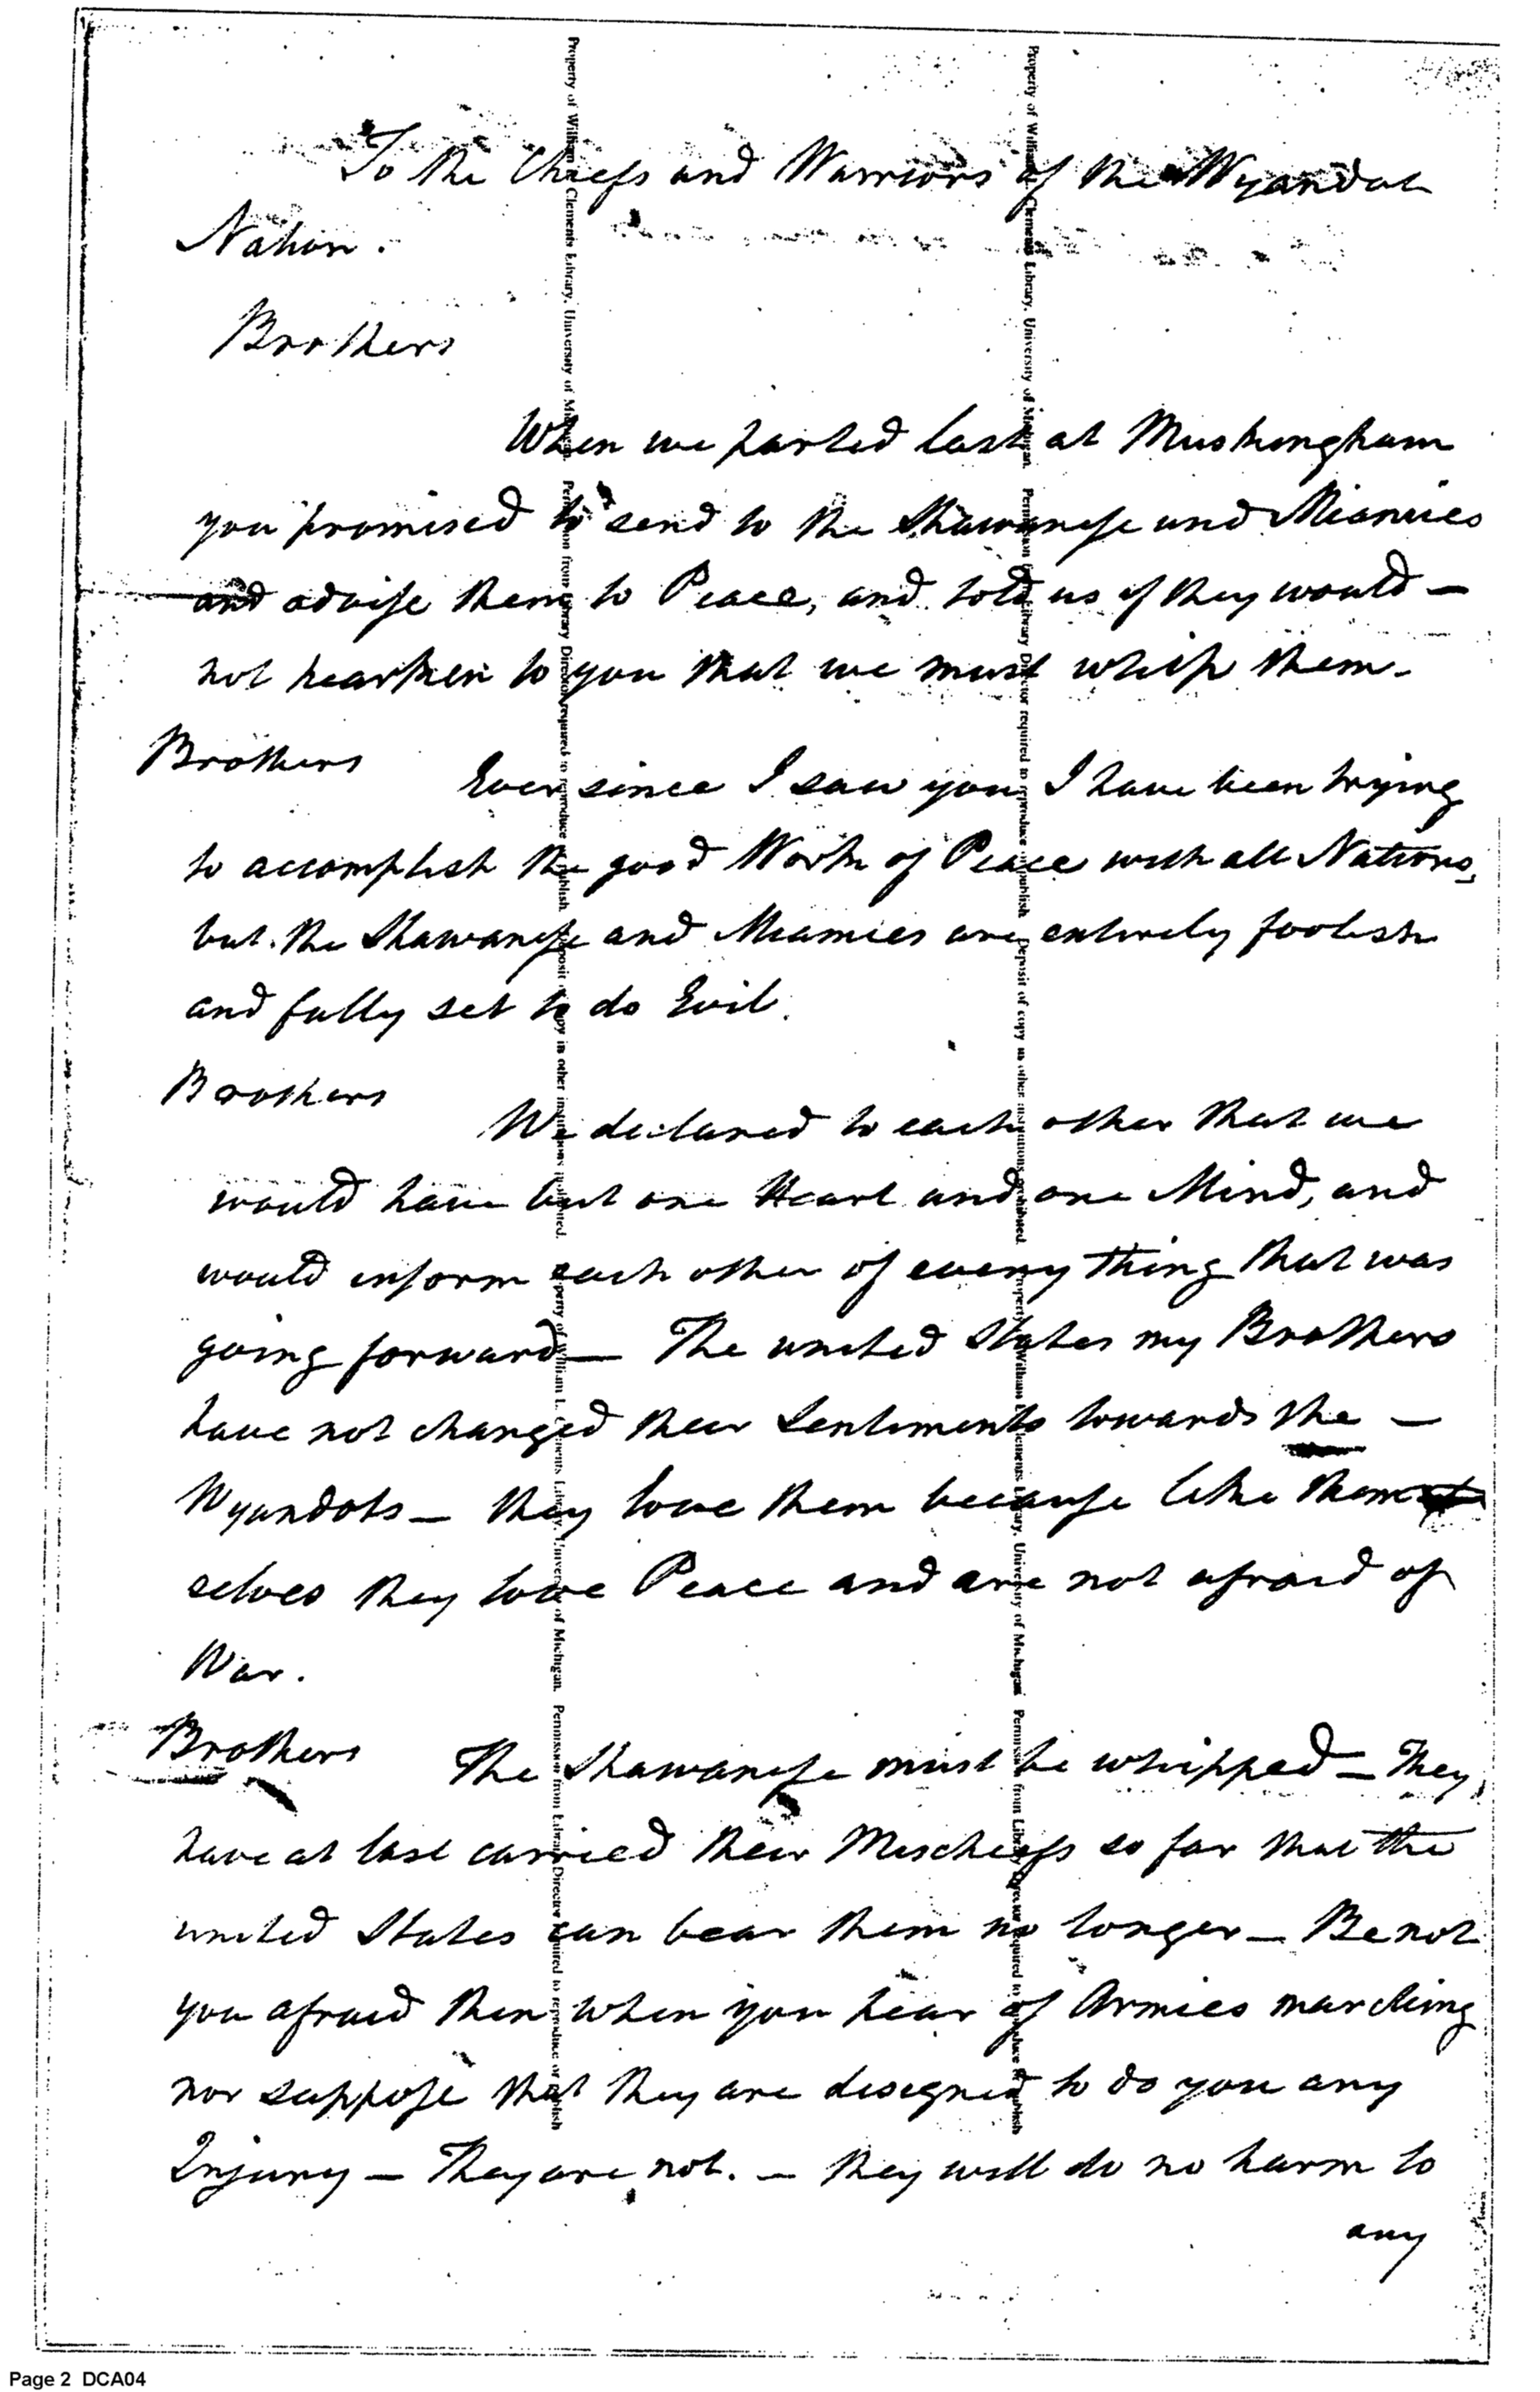 To the Chiefs and Warriors of the Wyandot
Nation.
Brothers
When we parted last at Muskingham
you promised to send to the Shawanese and Miamies
and advise them to Peace, and told us if they would —
not hearken to you that we must whip them.
Brothers
Ever since I saw you I have been trying
to accomplish the good Work of Peace with all Nations,
but the Shawanese and Miamies are entirely foolish
and fully set to do Evil.
Brothers
We declared to each other that we
would have but one Heart and one Mind, and
would inform each other of every thing that was
going forward — The united States my Brothers
have not changed their Sentiments towards the —
Wyandots — they love them because like them
selves they love Peace and are not afraid of
War.
Brothers
The Shawanese must be whipped — They
have at last carried their Mischiefs so far that the
united States can bear them no longer — Be not
you afraid then when you hear of Armies marching
nor suppose that they are designed to do you any
Injury — They are not. — they will do no harm to
any
Property of William L. Clements Library, University of Michigan. Permission from Library Director required to reproduce or publish. Deposit of copy in other institutions prohibited. Property of William L. Clements Library, University of Michigan. Permission from Library Director required to reproduce or publish
Property of William L. Clements Library, University of Michigan. Permission from Library Director required to reproduce or publish. Deposit of copy in other institutions prohibited. Property of William L. Clements Library, University of Michigan. Permission from Library Director required to reproduce or publish
Page 2 DCA04